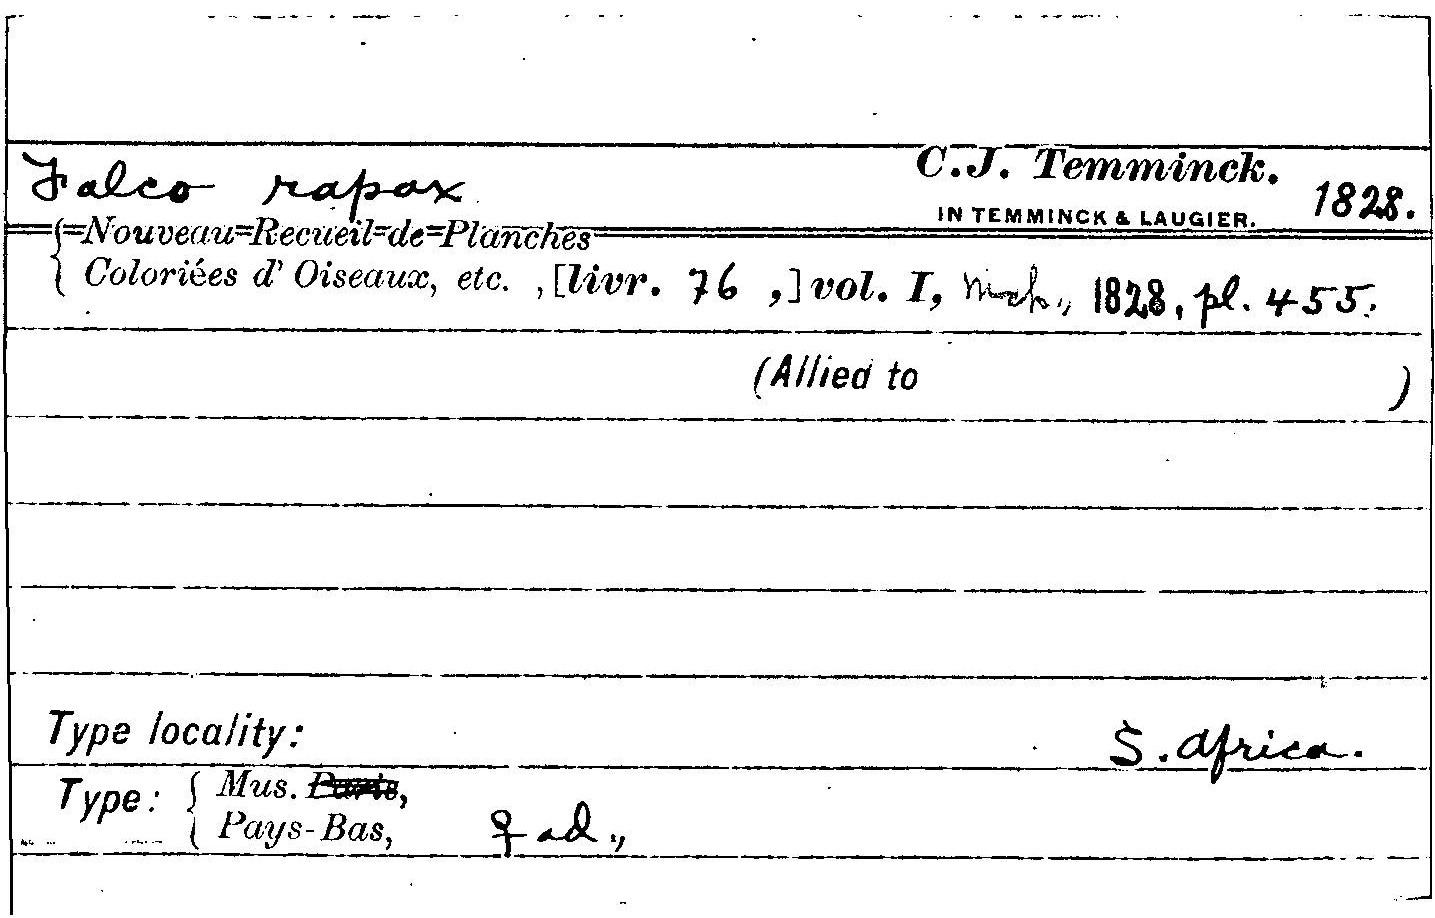 Falco rapax C.J. Temminck. 1828.
IN TEMMINCK & LAUGIER.
Nouveau Recueil de Planches
Coloriées d' Oiseaux, etc. , [livr. 76 ,] vol. I, 1828, pl. 455.
(Allied to )
Type locality: S. Africa.
Type: { Mus. Paris,
Pays-Bas, ♀ ad.,